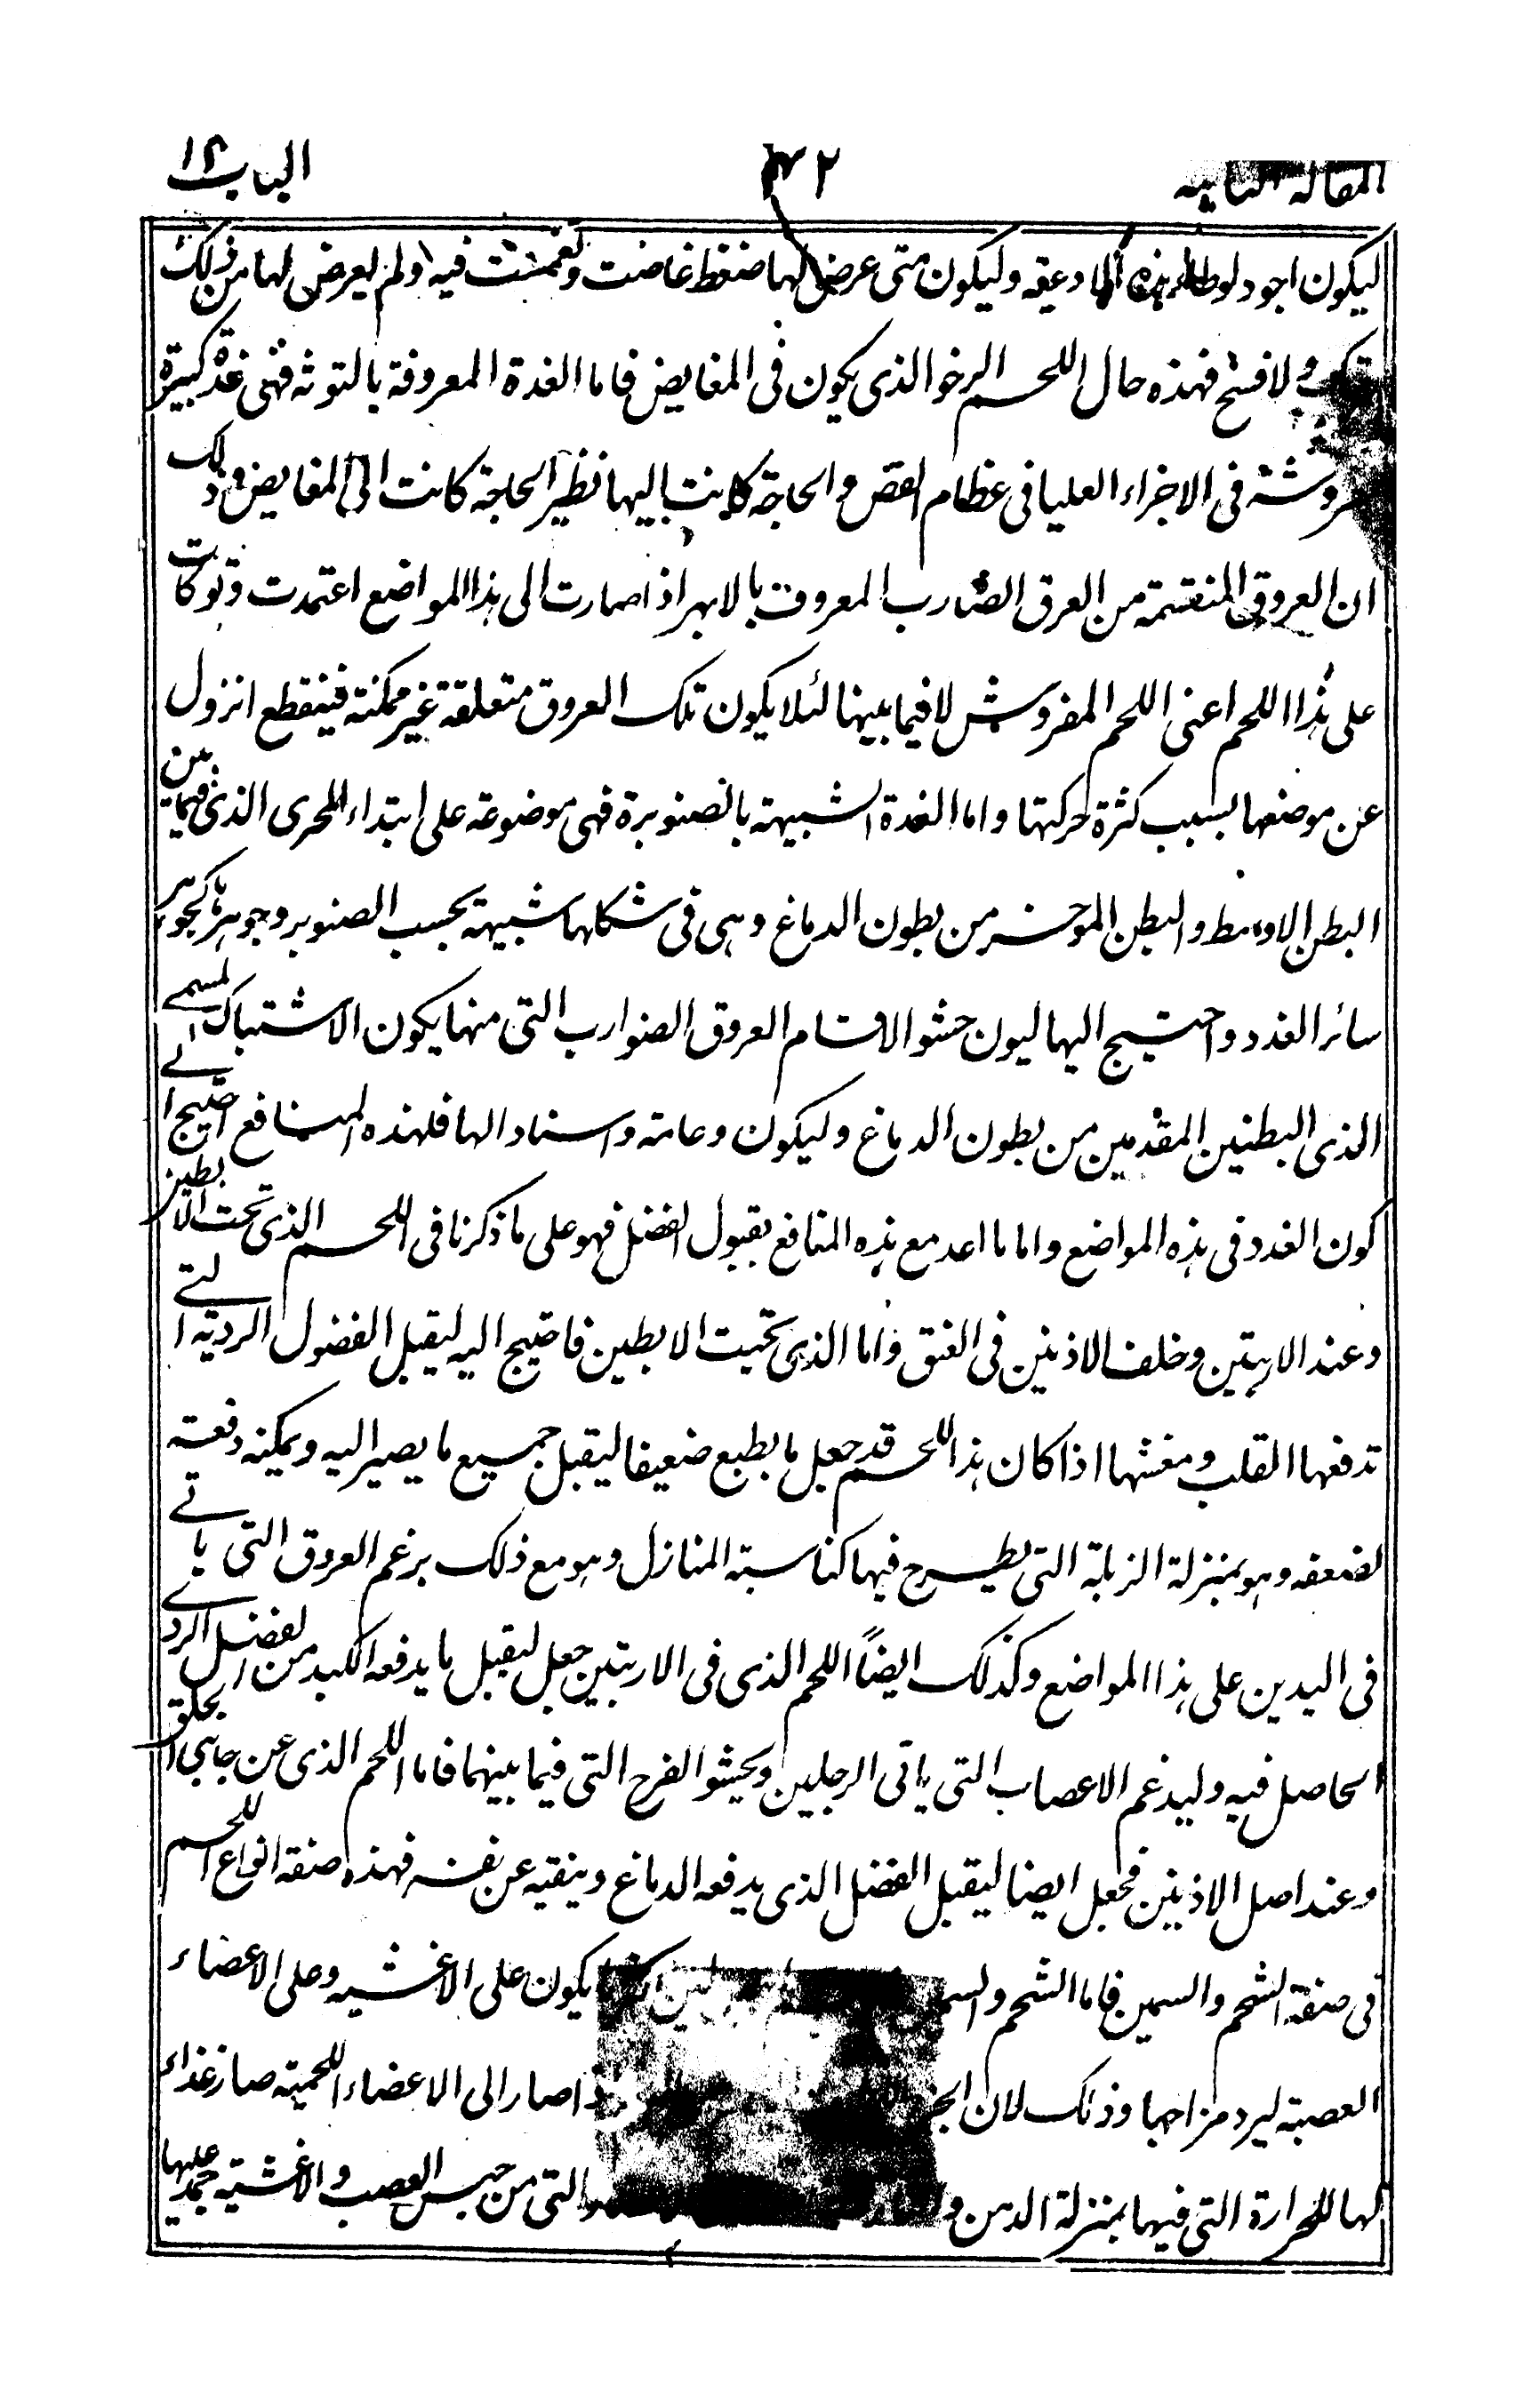 المقالة الثانية ٤٢ الباب ١٢
ليكون اجود لوطا هذه الاوعية وليكون متى عرض لها ضغط غاضت وتغمست فيه ولم يعرض لها من ذلك
ولا فسخ فهذه حال اللحم الرخو الذى يكون فى المغابض فاما الغدة المعروفة بالتوثه فهى غدة كبيرة
مفروشة فى الاجزاء العليا فى عظام القص والحاجة كانت اليها نظير الحاجة كانت الى المغابض وذلك
ان العروق المنقسمة من العرق الضارب المعروف بالابهر اذا صارت الى هذا المواضع اعتمدت وتوكات
على هذا اللحم اعنى اللحم المفروش لا فيما بينها لئلا يكون تلك العروق متعلقة غير ممكنة فينقطع انزول
عن موضعها بسبب كثرة حركتها واما الغدة الشبيهة بالصنوبرة فهى موضوعة على ابتداء المجرى الذى فيما بين
البطن الاوسط والبطن الموخر من بطون الدماغ وهى فى شكلها شبيهة بحسب الصنوبر وجوهرها كجوهر
سائر الغدد واحتيج اليها ليون حشو الاقسام العروق الضوارب التى منها يكون الاشتباك المسمى
الذى البطنين المقدمين من بطون الدماغ وليكون دعامة واسنادا لها فلهذه المنافع احتيج الى
كون الغدد فى هذه المواضع واما ما اعد مع هذه المنافع بقبول الفضل فهو على ما ذكرنا فى اللحم الذى تحت الابطين
وعند الاربتين وخلف الاذنين فى العنق واما الذى تحت الابطين فاحتيج اليه ليقبل الفضول الردية التى
تدفعها القلب ومغشها اذا كان هذا اللحم قد جعل ما بطبع ضعيفا ليقبل جميع ما يصير اليه ويمكنه دفعته
لضعفه وهو بمنزلة الزبلة التى يطرح فيها كناسة المنازل وهو مع ذلك برغم العروق التى ياتى
فى اليدين على هذا المواضع وكذلك ايضاً اللحم الذى فى الاربتين جعل ليقبل ما يدفعه الكبد من الفضل الردى
الحاصل فيه وليدغم الاعصاب التى ياتى الرجلين ويحشو الفرج التى فيما بينهما فاما اللحم الذى عن جانبى الحلق
وعند اصل الاذنين فجعل ايضا ليقبل الفضل الذى يدفعه الدماغ وينقيه عن نفسه فهذه صفة انواع اللحم
فى صفة الشحم والسمين فاما الشحم والسمين يكون على الاغشية وعلى الاعضاء
العصبة ليرد مزاجها وذلك لان اذا صار الى الاعضاء اللحمية صار غذاء
لها للحرارة التى فيها بمنزلة الدهن والتى من جنس العصب والاغشية جمد عليها